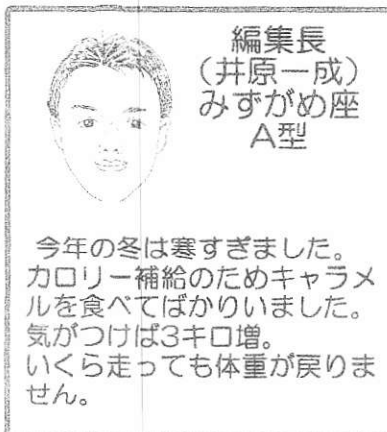 編集長
（井原一成）
みずがめ座
A型
今年の冬は寒すぎました。
カロリー補給のためキャラメ
ルを食べてばかりいました。
気がつけば3キロ増。
いくら走っても体重が戻りま
せん。